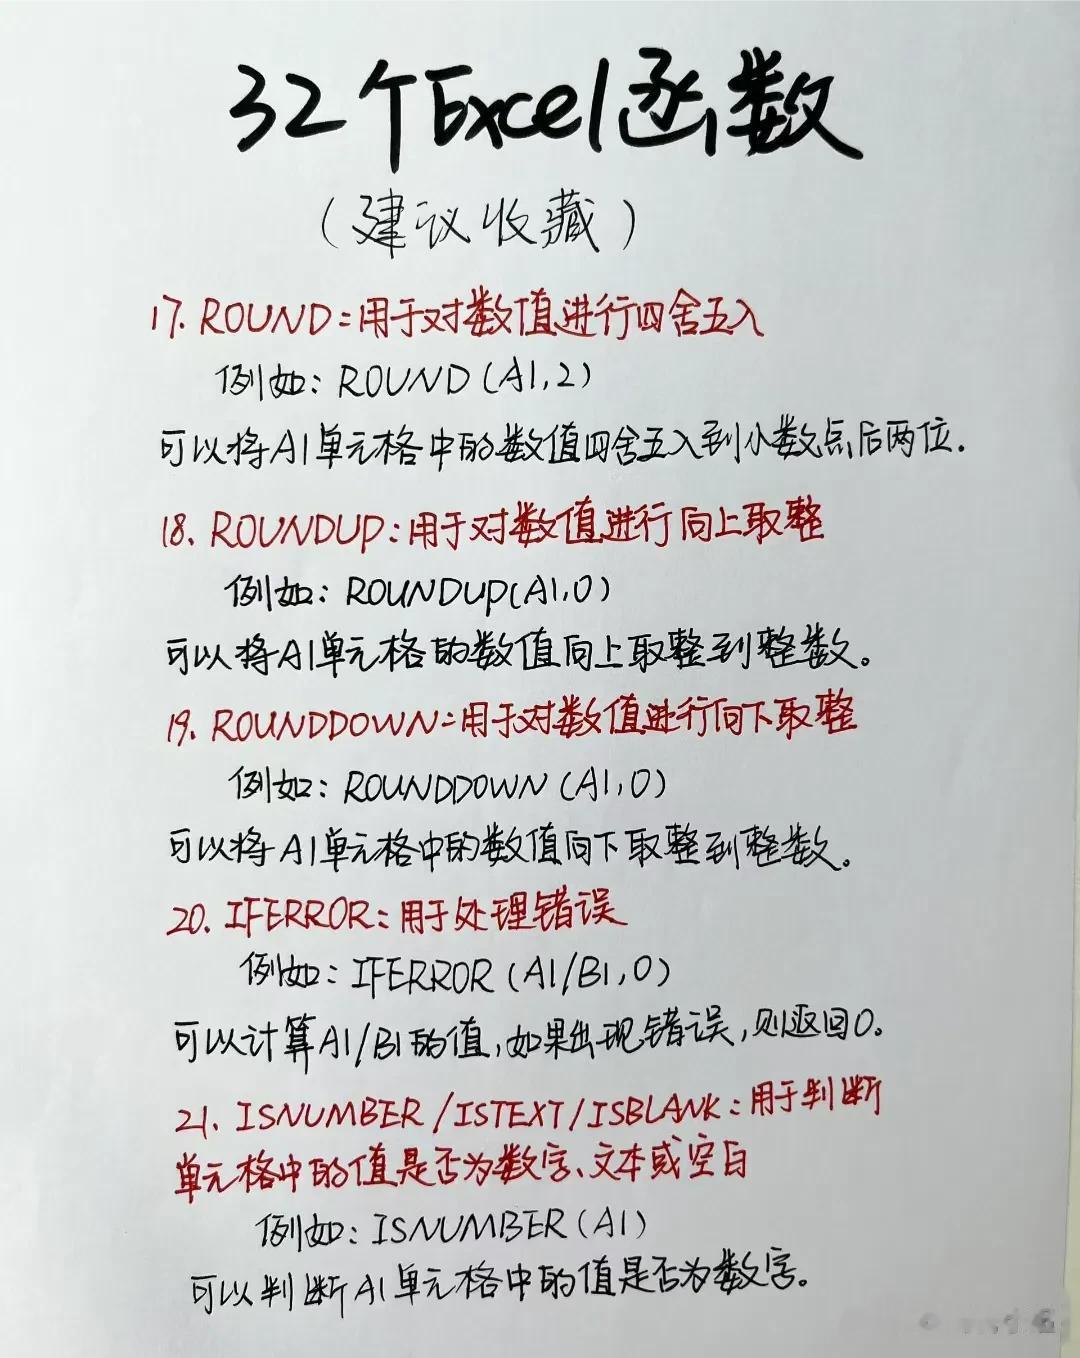 32个Excel函数
(建议收藏)
17. ROUND:用于对数值进行四舍五入
例如: ROUND (A1,2)
可以将A1单元格中的数值四舍五入到小数点后两位.
18. ROUNDUP:用于对数值进行向上取整
例如: ROUNDUP(A1,0)
可以将A1单元格的数值向上取整到整数。
19. ROUNDDOWN:用于对数值进行向下取整
例如: ROUNDDOWN (A1,0)
可以将A1单元格中的数值向下取整到整数。
20. IFERROR:用于处理错误
例如: IFERROR (A1/B1,0)
可以计算A1/B1的值,如果出现错误,则返回0。
21. ISNUMBER/ISTEXT/ISBLANK:用于判断
单元格中的值是否为数字、文本或空白
例如: ISNUMBER (A1)
可以判断A1单元格中的值是否为数字。